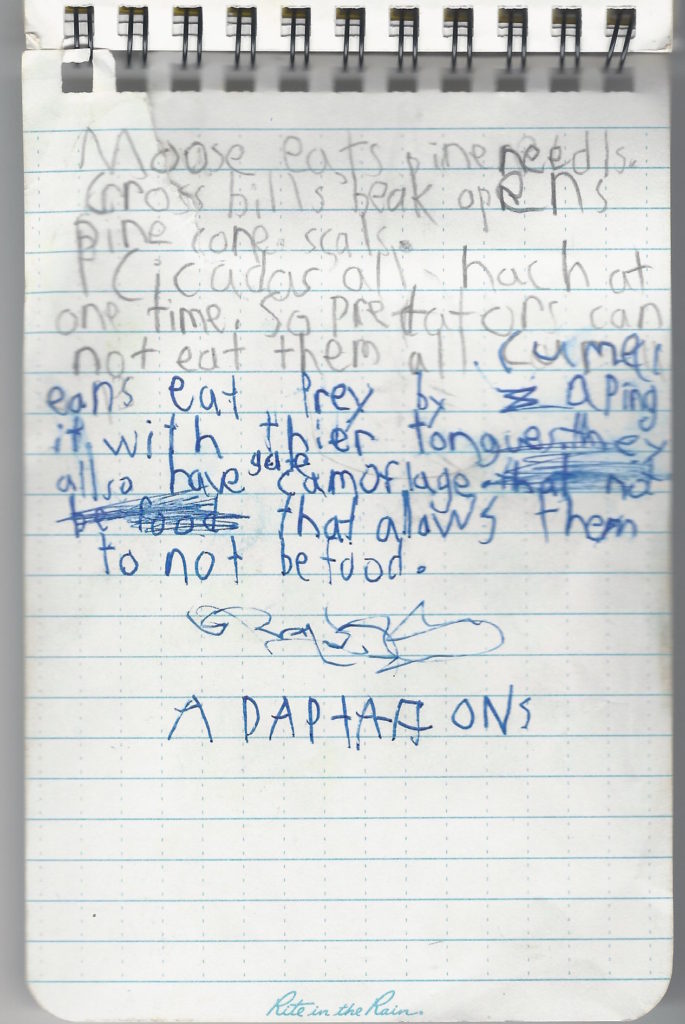 Moose eats pine needls.
Cross bills beak opens
pine cone scals.
Cicadas all hach at
one time. So pretators can
not eat them all. Cumel
eans eat Prey by aping
it with thier tongue they
allso have camoflage that not
be food that alows them
to not be food.
ADAPtAtIONs
Rite in the Rain.